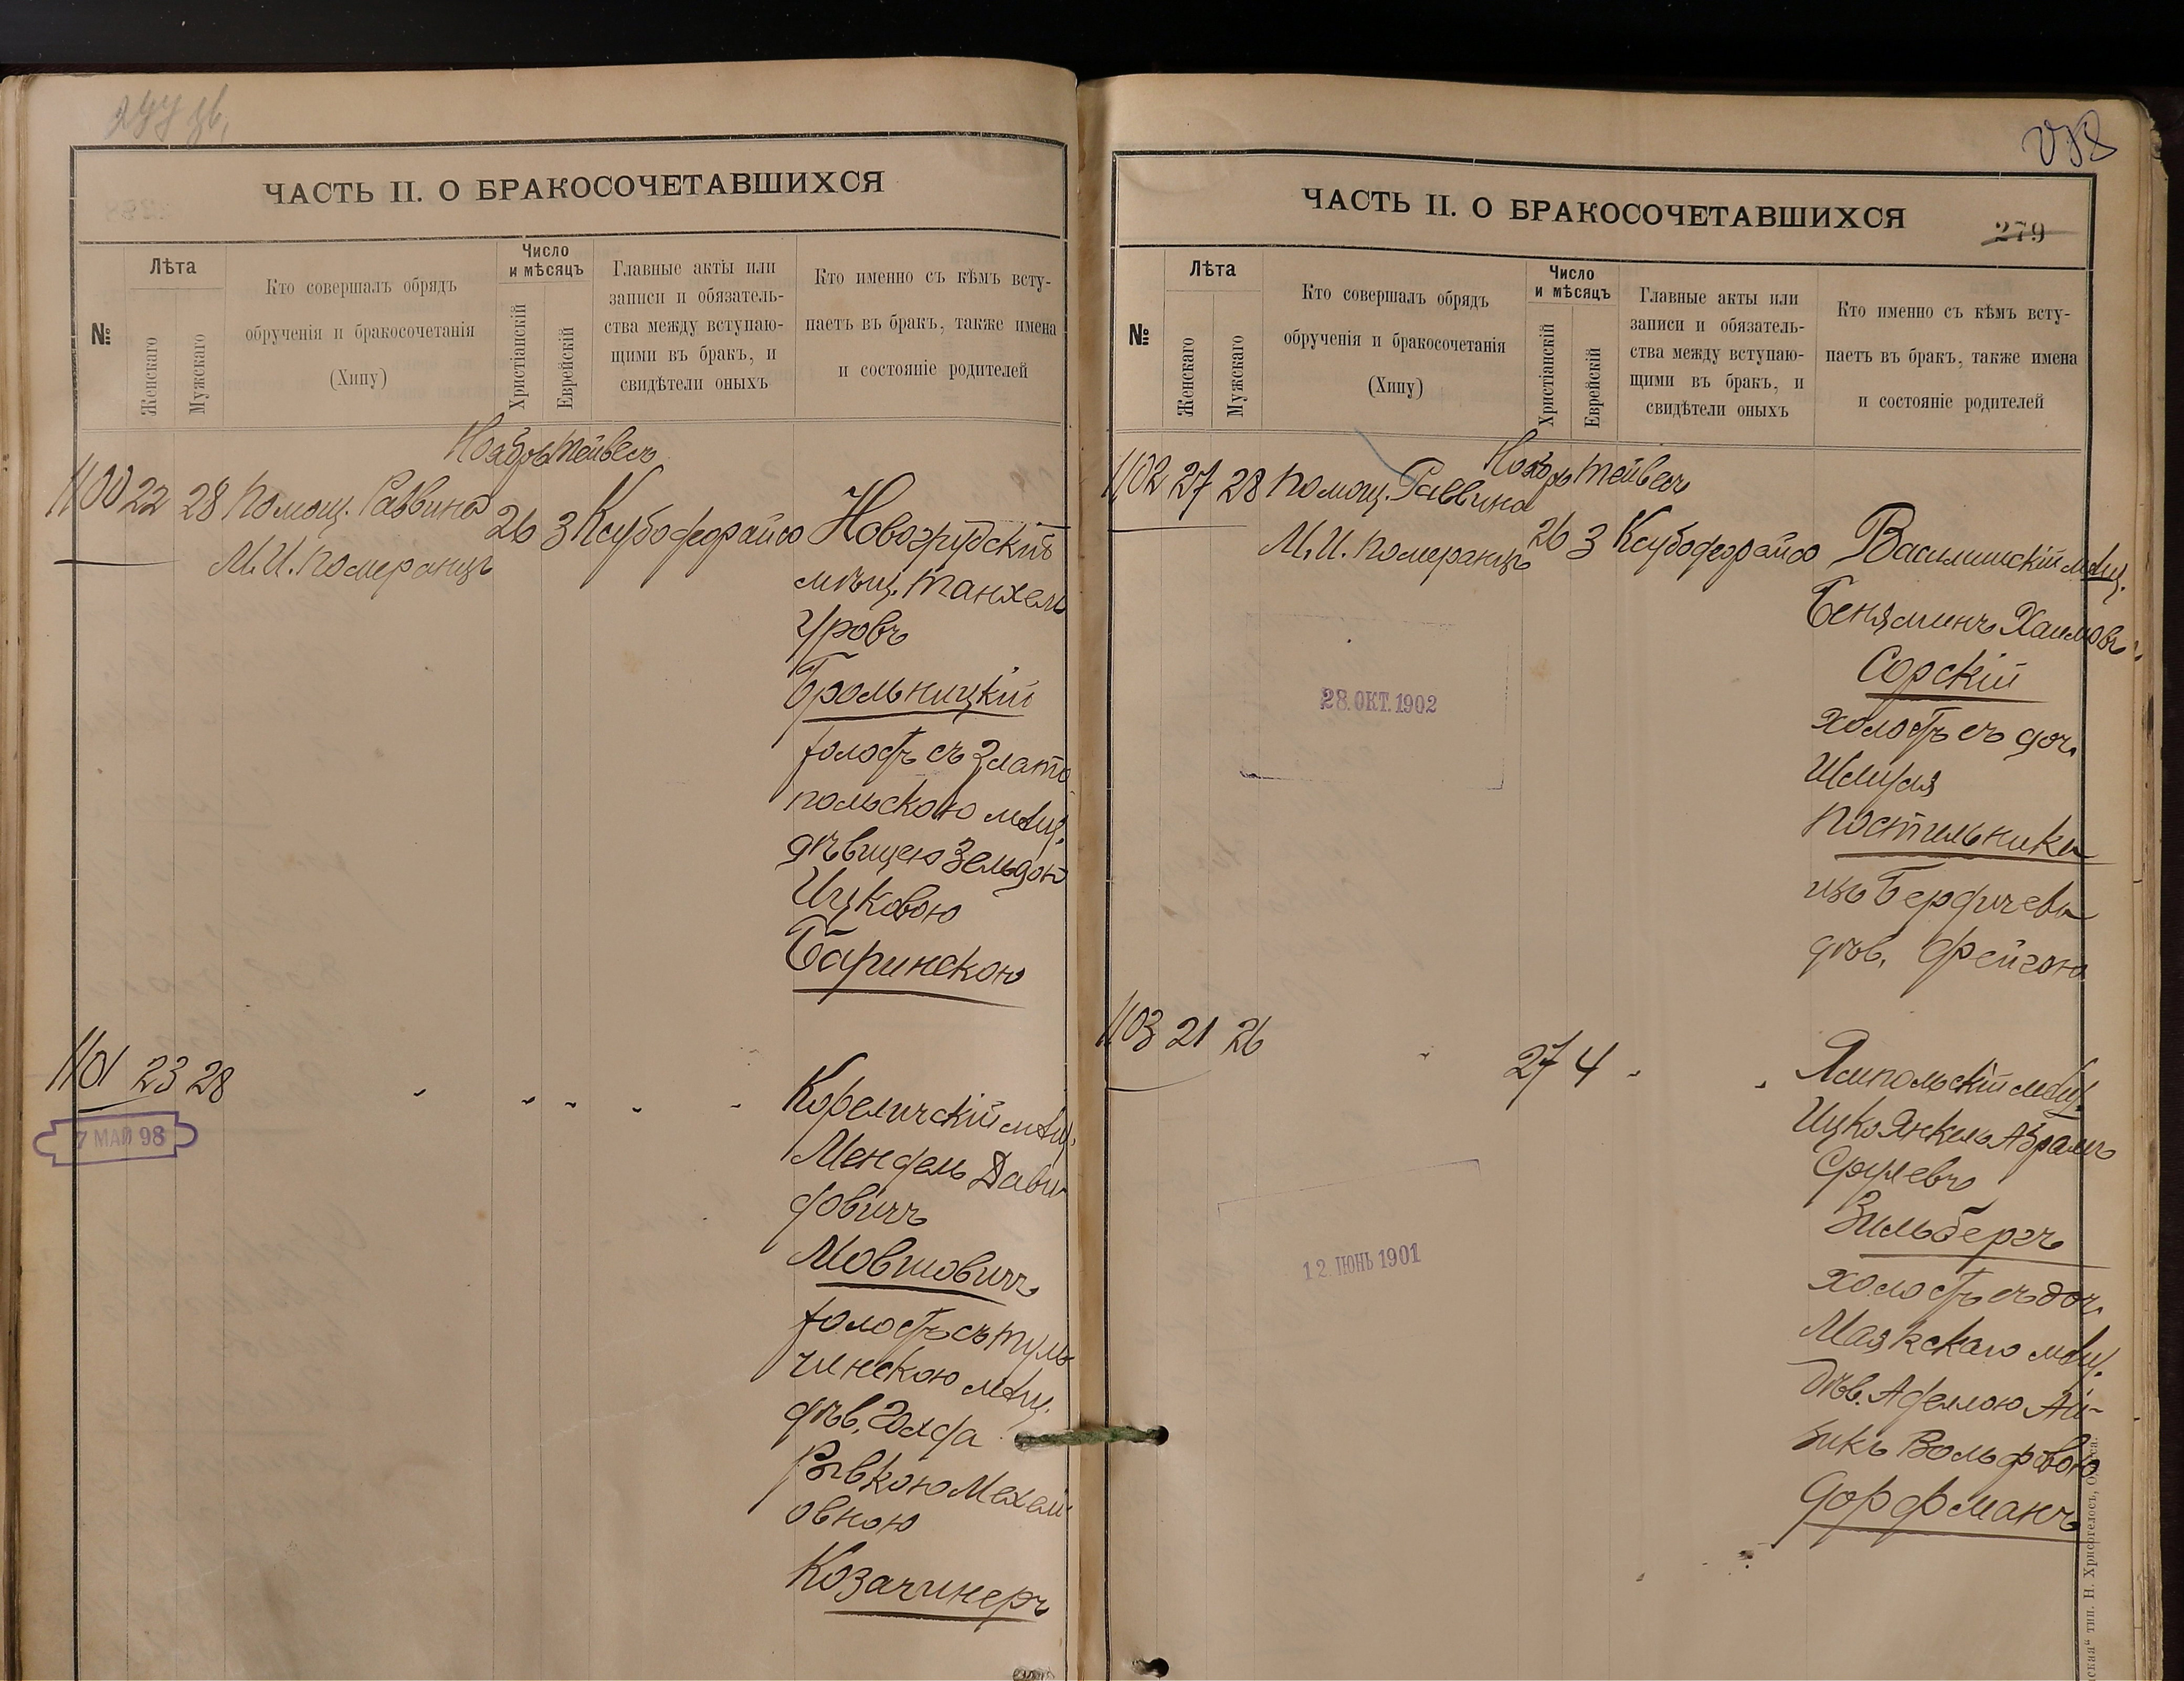 ЧАСТЬ II. О БРАКОСОЧЕТАВШИХСЯ
№
Лѣта
Женскаго
Мужскаго
Кто совершалъ обрядъ
обрученія и бракосочетанія
(Хипу)
Число
и мѣсяцъ
Христіанскій
Еврейскій
Главные акты или
записи и обязатель-
ства между вступаю-
щими въ бракъ, и
свидѣтели оныхъ
Кто именно съ кѣмъ всту-
паетъ въ бракъ, также имена
и состояніе родителей
Ноябрь Тейвесъ
1100 22 28 Помощ. Раввина 26 3 Ксубо феарайсо Новогрудскій
М. И. Померанцъ
мѣщ. Танхель
Уровъ
Брольницкій
холостъ съ Злато
польскою мѣщ.
дѣвицею Зельдою
Ицковою
Баринскою
1101 23 28 " " " " " Кореличскій мѣщ.
7 МАЙ 98
Мендель Дави
довичъ
Мовшовичъ
холостъ съ Туль
чинскою мѣщ.
дѣв. Голда
Рывкою Мехел
овною
Козачинеръ
ЧАСТЬ II. О БРАКОСОЧЕТАВШИХСЯ
279
№
Лѣта
Женскаго
Мужскаго
Кто совершалъ обрядъ
обрученія и бракосочетанія
(Хипу)
Число
и мѣсяцъ
Христіанскій
Еврейскій
Главные акты или
записи и обязатель-
ства между вступаю-
щими въ бракъ, и
свидѣтели оныхъ
Кто именно съ кѣмъ всту-
паетъ въ бракъ, также имена
и состояніе родителей
Ноябрь Тейвесъ
1102 27 28 Помощ. Раввина 26 3 Ксубо феарайсо Василишскій мѣщ.
М. И. Померанцъ
Беняминъ Хаимовъ
Сорскій
28. ОКТ. 1902
холостъ съ доч.
Шмуля
Постильника
изъ Бердичева
дѣв. Фейгою
1103 21 26 " 27 4 " " Ямпольскій мѣщ.
Ицко Янкель Абрамъ
Срулевъ
Зильбергъ
12. ІЮНЬ 1901
холостъ съ доч.
Маякскаго мѣщ.
дѣв. Аделою Ай-
зикъ Вольфовою
Дорфманъ
тип. Н. Хрисогелосъ,